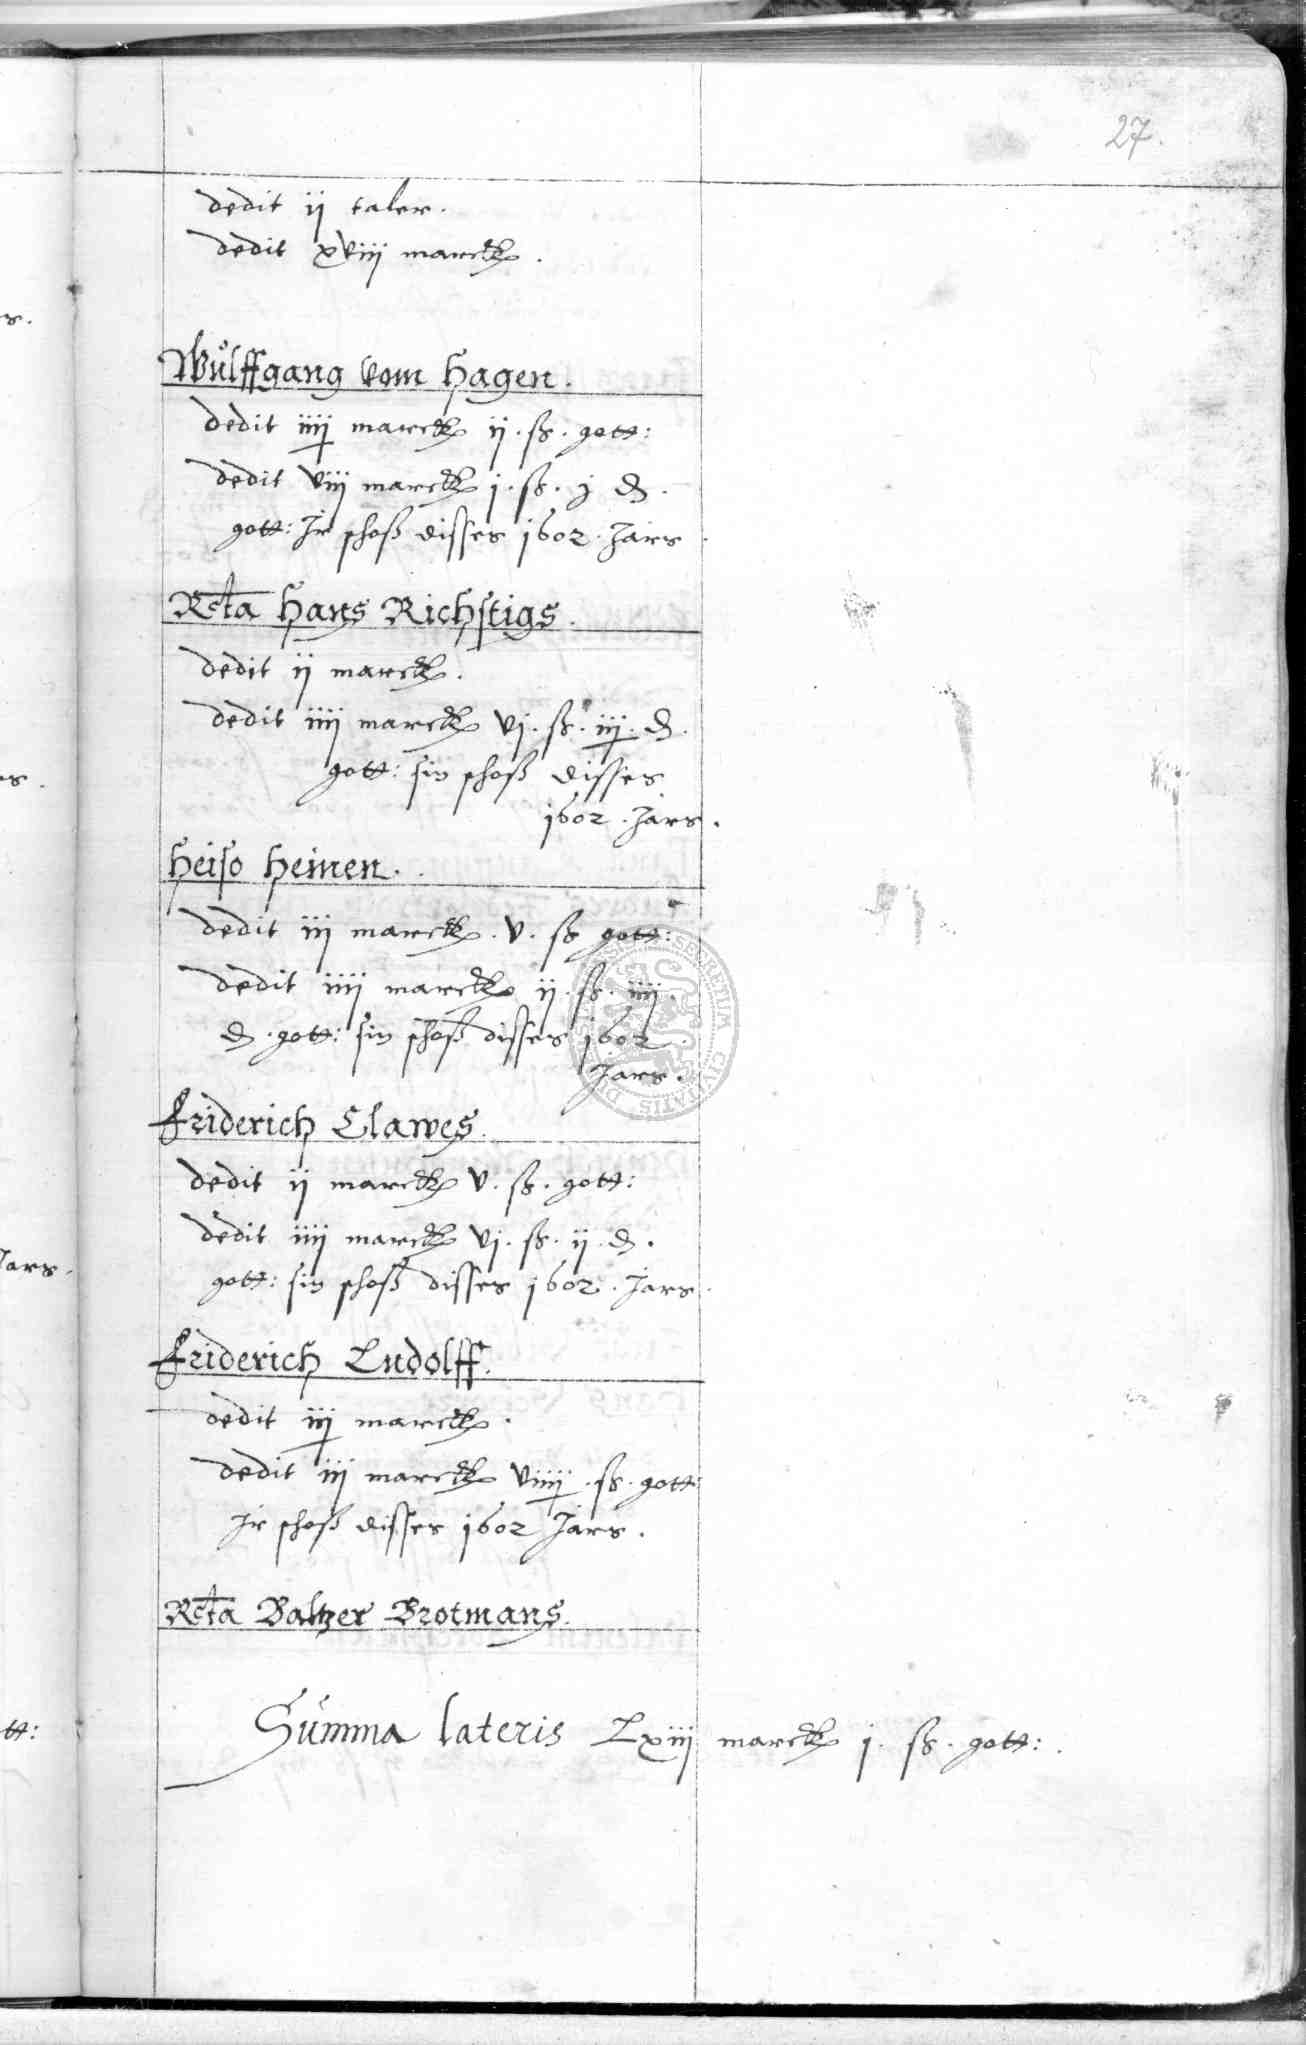 27.
dedit ij taler.
dedit xviij marck.
Wulffgang vom Hagen.
dedit iiij marck ij. ß. gott:
dedit viij marck j. ß. j d.
gott: Ir schoß disses 1602. Jars.
Rcta Hans Richstigs.
dedit ij marck.
dedit iiij marck vj. ß. iij. d.
gott: sin schoß disses
1602. Jars.
Heiso Heinen.
dedit iij marck. v. ß gott:
dedit iiij marck ij. ß. iiij.
d. gott: sin schoß disses 1602.
Jars.
Friderich Clawes.
dedit ij marck v. ß. gott:
dedit iiij marck vj. ß. ij. d.
gott: sin schoß disses 1602. Jars.
Friderich Ludolff.
dedit iij marck.
dedit iij marck viiij. ß. gott:
Ir schoß disses 1602 Jars.
Rcta Baltzer Brotmans.
Summa lateris Lxiij marck j. ß. gott:.